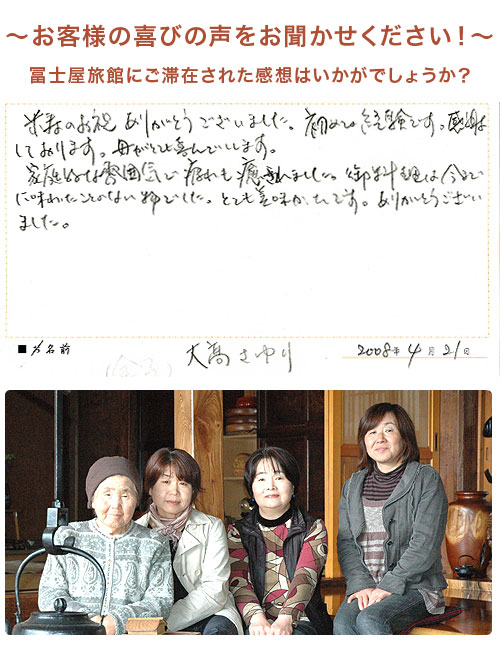 ～お客様の喜びの声をお聞かせください！～
冨士屋旅館にご滞在された感想はいかがでしょうか？
米寿のお祝 ありがとうございました。初めての経験です。感謝
しております。母がとても喜んでいます。
家庭的な雰囲気で疲れも癒されました。御料理は今までに
味わったことのない物でした。とても美味かったです。ありがとうござい
ました。
■お名前 大高さゆり 2008年4月21日